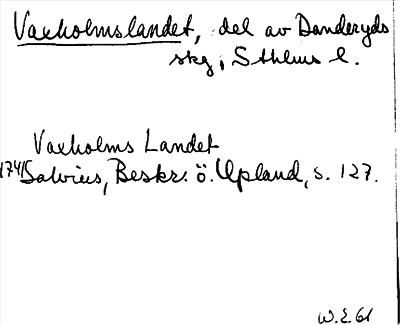 Vaxholmslandet, del av Danderyds
skg, Sthlms l.
Vaxholms Landet
1741 Salvius, Beskr. ö. Upland, s. 127.
W.E. 61